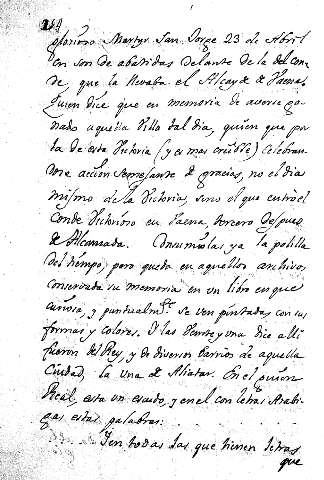 glorioso Martyr San Jorge 23 de Abril
en son de abatidas delante de la del con-
de que la llevaba el Alcayde de Vaena.
Quien dice que en memoria de averse ga-
nado aquella Villa tal dia, quien que por
ta de esta Victoria (y es mas creible) celebran-
dose accion de gracias, no el dia
mismo de la Victoria, sino el que entrò el
Conde Victorioso en Vaena, tercero despues
de Alcansada. Consumiolas ya la polilla
del tiempo, pero queda en aquellos archivos
conservada su memoria en un libro en que
curiosa, y puntualmte. se ven pintadas con sus
formas y colores. De las Veinte y una dice alli
fueron del Rey, y de diversos barrios de aquella
Ciudad, la una de Aliatar. En el guion
Real, esta un escudo, y en el con letras Arabi-
gas estas palabras:
Y en todas las que tienen letras
que